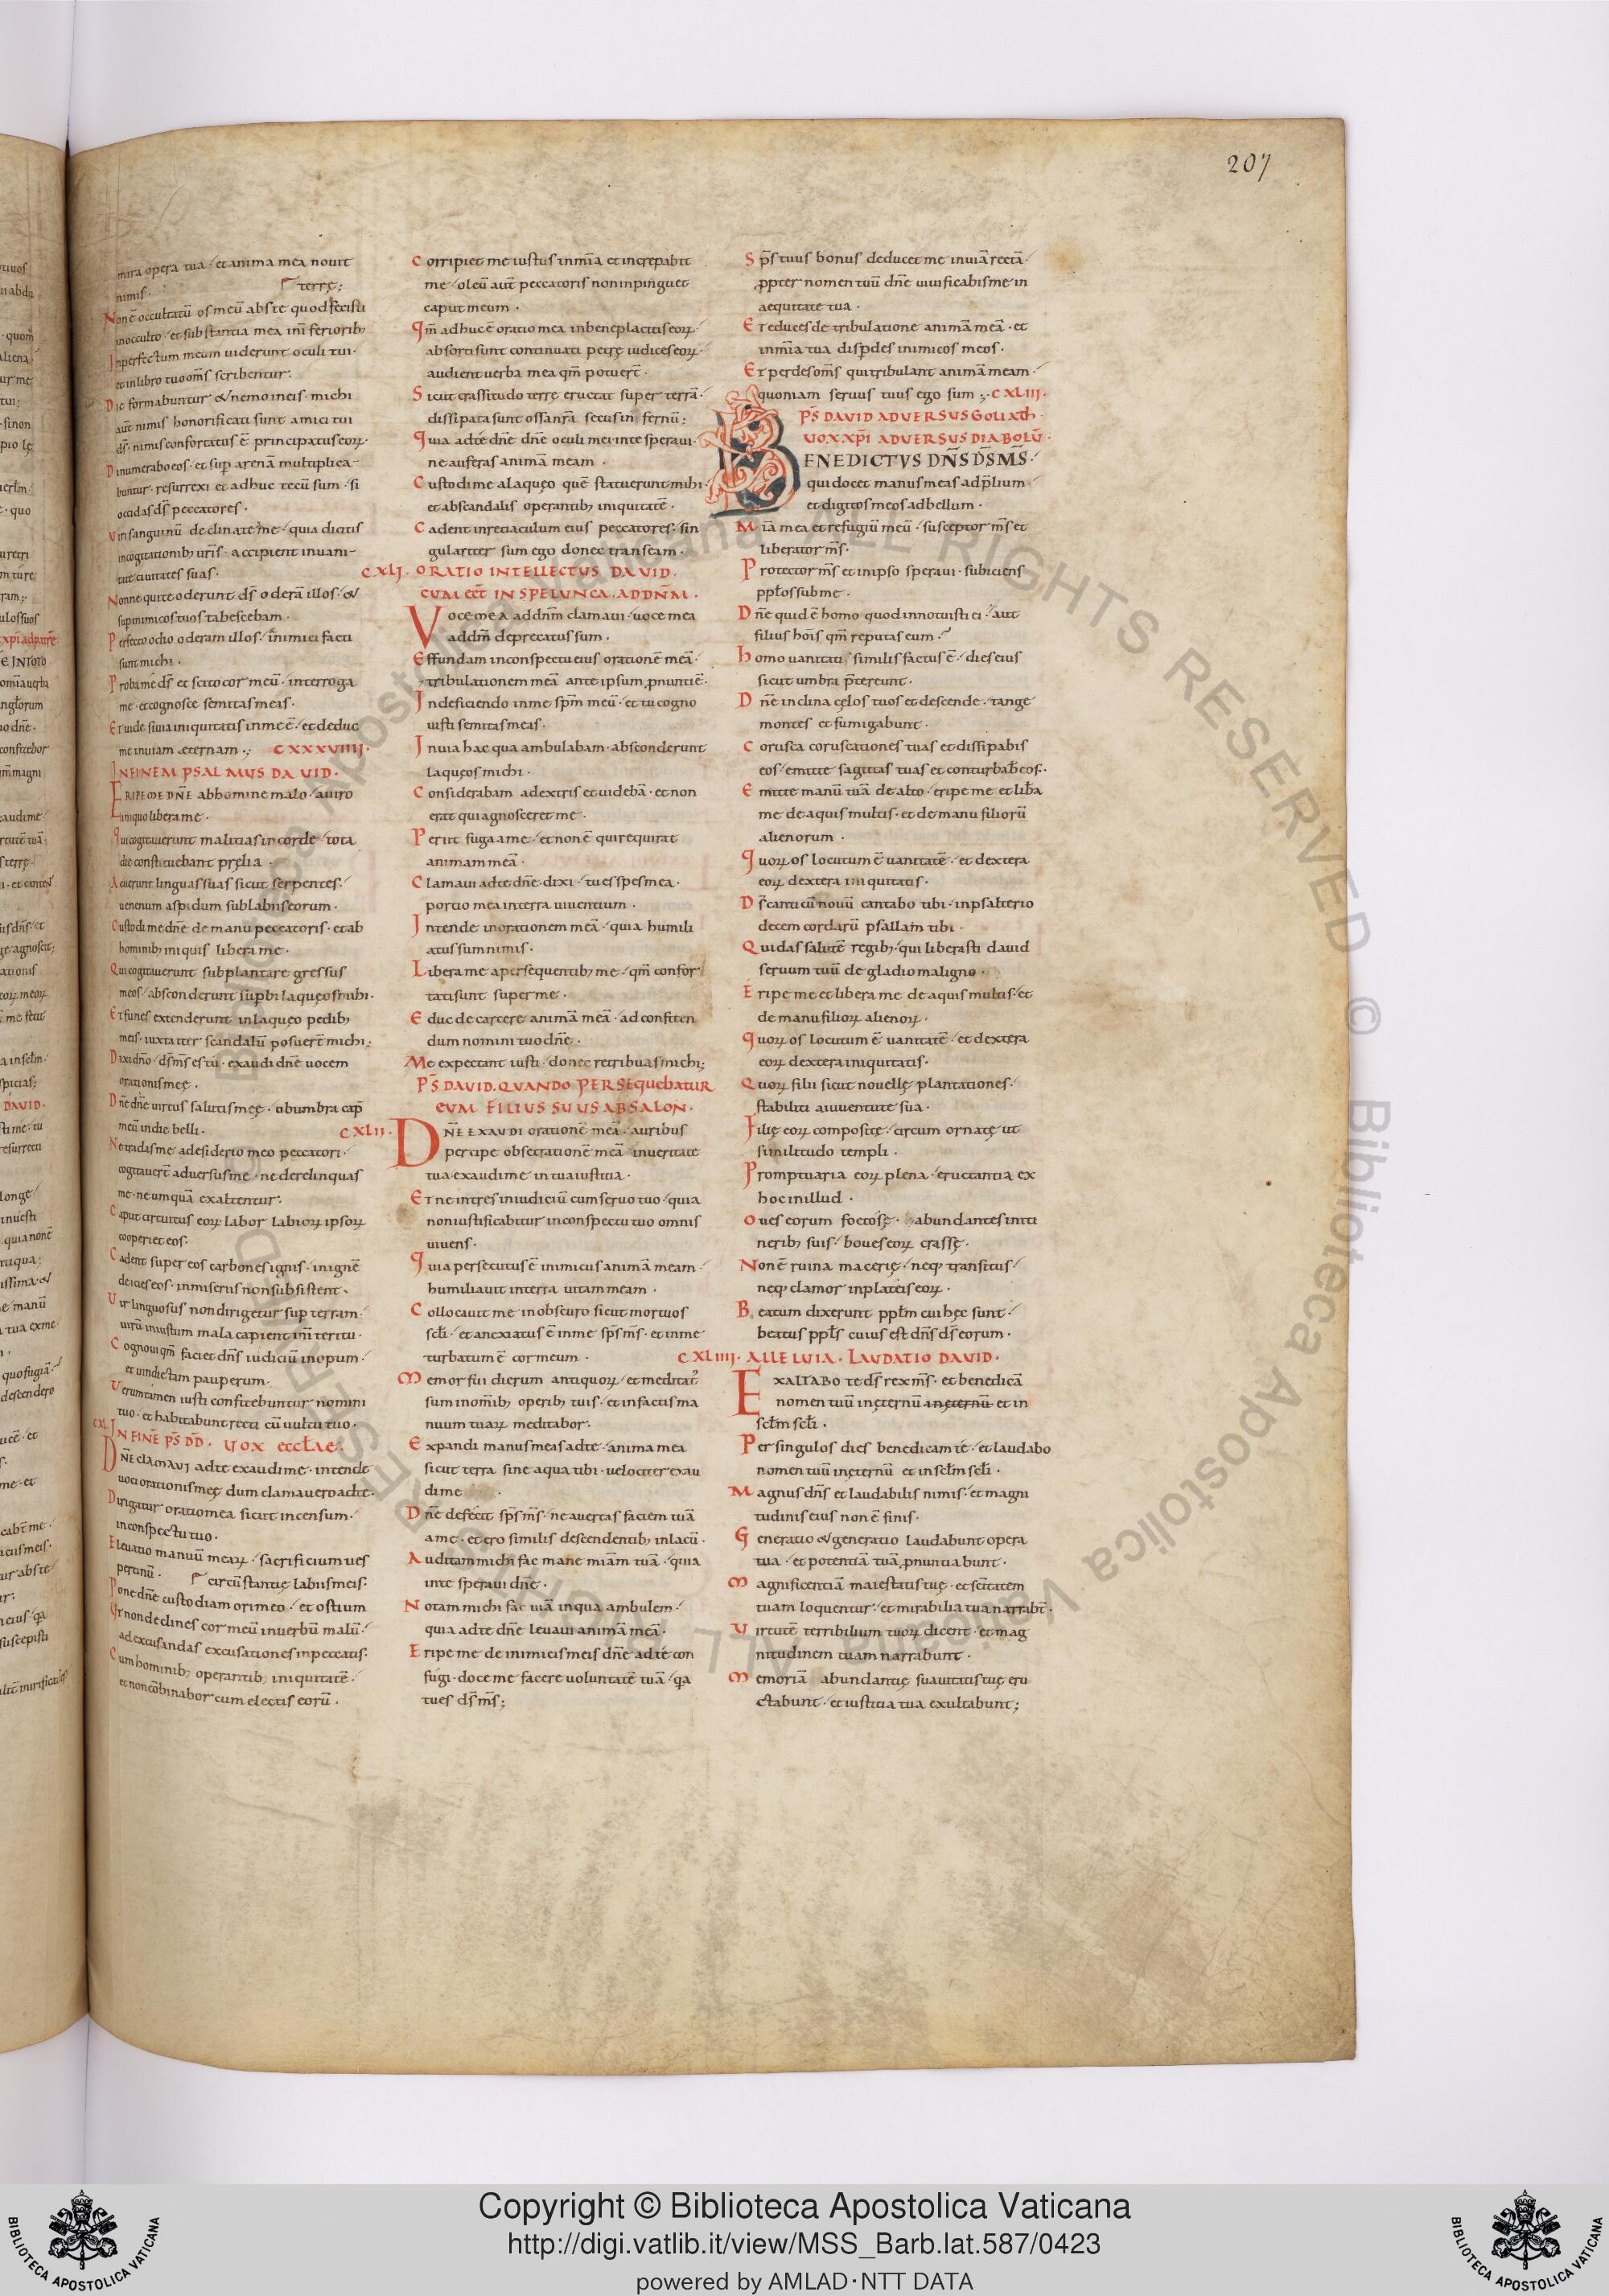 207
mira opera tua. et anima mea nouit
nimis. terrę;
Non ē occultatū os meū abs te quod fecisti
in occulto. et substantia mea inī feriorib;
Inperfectum meum uiderunt oculi tui.
et in libro tuo oms̄ scribentur.
Die formabuntur & nemo in eis. michi
aut̄ nimis honorificati sunt amici tui
ds̄. nimis confortatus ē principatus eoꝝ.
Dinumerabo eos. et sup̄ arenā multiplica
buntur. resurrexi et adhuc tecū sum. si
occidas ds̄ peccatores.
Viri sanguinū declinate a me. quia dicitis
in cogitationib; uris̄. accipient in uani
tate ciuitates suas.
Nonne qui te oderunt ds̄ oderā illos. &
sup inimicos tuos tabescebam.
Perfecto odio oderam illos. inimici facti
sunt michi.
Proba me ds̄ et scito cor meū. interroga
me. et cognosce semitas meas.
Et uide si uia iniquitatis in me ē. et deduc
me in uiam ęternam.; CXXXVIIII.
IN FINEM PSALMUS DAUID.
ERIPE ME DNĒ ab homine malo. a uiro
iniquo libera me.
Qui cogitauerunt malitias in corde. tota
die constituebant pręlia.
Acuerunt linguas suas sicut serpentes.
uenenum aspidum sub labiis eorum.
Custodi me dnē de manu peccatoris. et ab
hominib; iniquis libera me.
Qui cogitauerunt subplantare gressus
meos. absconderunt supbi laqueos mihi.
Et funes extenderunt in laqueo pedib;
meis. iuxta iter scandalū posuert̄ michi;
Dixi dnō. ds̄ ms̄ es tu. exaudi dnē uocem
orationis meę.
Dnē dnē uirtus salutis meę. obumbra cap̄
meū in die belli.
Ne tradas me a desiderio meo peccatori.
cogitauerē aduersus me. ne derelinquas
me. ne umquā exaltentur.
Caput circuitus eoꝝ. labor labioꝝ ipsoꝝ
cooperiet eos.
Cadent super eos carbones ignis. in ignē
deicies eos. in miseriis non subsistent.
Vir linguosus non dirigetur sup terram.
uirū iniustum mala capient inī teritu.
Cognoui qm̄ faciet dns̄ iudiciū inopum.
et uindictam pauperum.
Verumtamen iusti confitebuntur nomini
tuo. et habitabunt recti cū uultu tuo.
CXL. IN FINĒ PS̄ DD̄. VOX ECCŁAE.
DNĒ CLAMAVI ad te exaudi me. intende
uoci orationis meę dum clamauero ad te.
Dirigatur oratio mea sicut incensum.
in conspectu tuo.
Eleuatio manuū meaꝝ. sacrificium ues
pertinū. circūstantię labiis meis.
Pone dnē custodiam ori meo. et ostium
Vt non declines cor meū in uerbū malū.
ad excusandas excusationes in peccatis.
Cum hominib; operantib; iniquitatē.
et non cōbinabor cum electis eorū.
Corripiet me iustus in mīa et increpabit
me. oleū aut̄ peccatoris non inpinguet
caput meum.
Qm̄ adhuc ē oratio mea in beneplacitis eoꝝ.
absorti sunt continuati petrę iudices eoꝝ.
Audient uerba mea qm̄ potuert̄.
Sicut crassitudo terrę eructat super terrā.
dissipata sunt ossa nrā secus in fernū;
Quia ad te dnē dnē oculi mei in te speraui.
ne auferas animā meam.
Custodi me a laqueo quē statuerunt mihi.
et ab scandalis operantib; iniquitatē.
Cadent in retiaculum eius peccatores. sin
gulariter sum ego donec transeam.
CXLI. ORATIO INTELLECTUS DAUID.
CUM EĒT IN SPELUNCA. AD DNM̄.
Voce mea ad dnm̄ clamaui. uoce mea
ad dnm̄ deprecatus sum.
Effundam in conspectu eius orationē meā.
tribulationem meā ante ipsum ꝓnuntiē.
In deficiendo in me spm̄ meū. et tu cogno
uisti semitas meas.
In uia hac qua ambulabam. absconderunt
laqueos michi.
Considerabam ad extris et uidebā. et non
erat qui agnosceret me.
Periit fuga a me. et non ē qui requirat
animam meā.
Clamaui ad te dnē. dixi. tu es spes mea.
portio mea in terra uiuentium.
Intende in orationem meā. quia humili
atus sum nimis.
Libera me a persequentib; me. qm̄ confor
tati sunt super me.
Educ de carcere animā meā. ad confiten
dum nomini tuo dnē.
Me expectant iusti. donec retribuas michi;
PS̄ DAVID. QVANDO PERSEQUEBATUR
EVM FILIUS SUUS ABSALON.
CXLII. DNĒ EXAUDI orationē meā. auribus
percipe obsecrationē meā in ueritate
tua exaudi me in tua iustitia.
Et ne intres in iudiciū cum seruo tuo. quia
non iustificabitur in conspectu tuo omnis
uiuens.
Quia persecutus ē inimicus animā meam.
humiliauit in terra uitam meam.
Collocauit me in obscuro sicut mortuos
sclī. et anxiatus ē in me sps̄ ms̄. et in me
turbatum ē cor meum.
Memor fui dierum antiquoꝝ. et meditat᷒
sum in omīb; operib; tuis. et in factis ma
nuum tuaꝝ meditabor.
Expandi manus meas ad te. anima mea
sicut terra sine aqua tibi. uelociter exau
di me
Dnē defecit sps̄ ms̄. ne auertas faciem tuā
a me. et ero similis descendentib; in lacū.
Auditam michi fac mane miām tuā. quia
in te speraui dnē.
Notam michi fac uiā in qua ambulem.
quia ad te dnē leuaui animā meā.
Eripe me de inimicis meis dnē ad te con
fugi. doce me facere uoluntatē tuā. qa
tu es ds̄ ms̄;
Sps̄ tuus bonus deducet me in uiā rectā.
ꝓpter nomen tuū dnē uiuificabis me in
aequitate tua.
Et educes de tribulatione animā meā. et
in mīa tua disꝑdes inimicos meos.
Et perdes oms̄ qui tribulant animā meam.
quoniam seruus tuus ego sum;. CXLIII.
PS̄ DAVID ADVERSUS GOLIATH.
UOX XPĪ ADVERSUS DIABOLŪ.
BENEDICTVS DN̄S DS̄ MS̄.
qui docet manus meas ad p̄lium
et digitos meos ad bellum.
Mīa mea et refugiū meū. susceptor ms̄ et
liberator ms̄.
Protector ms̄ et in ipso speraui. subiciens
pplōs sub me.
Dnē quid ē homo quod innotuisti ei. aut
filius hoīs qm̄ reputas eum.
homo uanitati similis factus ē. dies eius
sicut umbra p̄tereunt.
Dnē inclina cęlos tuos et descende. tange
montes et fumigabunt.
Corusca coruscationes tuas et dissipabis
eos. emitte sagittas tuas et conturbab̄ eos.
Emitte manū tuā de alto. eripe me et lib̄a
me de aquis multis. et de manu filiorū
alienorum.
Quoꝝ os locutum ē uanitatē. et dextera
eoꝝ dextera iniquitatis.
Ds̄ canticū nouū cantabo tibi. in psalterio
decem cordarū psallam tibi.
Qui das salutē regib; qui liberasti dauid
seruum tuū de gladio maligno.
Eripe me et libera me de aquis multis. et
de manu filioꝝ alienoꝝ.
Quoꝝ os locutum ē uanitatē. et dextera
eoꝝ dextera iniquitatis.
Quoꝝ filii sicut nouellę plantationes.
stabiliti a iuuentute sua.
Filię eoꝝ compositę. circum ornatę ut
similitudo templi.
Promptuaria eoꝝ plena. eructantia ex
hoc in illud.
Oues eorum foetosę. abundantes in iti
nerib; suis. boues eoꝝ crassę.
Non ē ruina macerię. neq; transitus.
neq; clamor in plateis eoꝝ.
Beatum dixerunt pplm̄ cui hęc sunt.
beatus ppls̄ cuius est dns̄ ds̄ eorum.
CXLIIII. ALLELUIA. LAUDATIO DAVID.
EXALTABO te ds̄ rex ms̄. et benedicā
nomen tuū in ęternū in ęternū et in
sclm̄ sclī.
Per singulos dies benedicam te. et laudabo
nomen tuū in ęternū et in sclm̄ sclī.
Magnus dns̄ et laudabilis nimis. et magni
tudinis eius non ē finis.
Generatio & generatio laudabunt opera
tua. et potentiā tuā ꝓnuntiabunt.
Magnificentiā maiestatis tuę. et scītatem
tuam loquentur. et mirabilia tua narrabt̄.
Virtutē terribilium tuoꝝ dicent. et mag
nitudinem tuam narrabunt.
Memoriā abundantię suauitatis tuę eru
ctabunt. et iustitia tua exultabunt;
Copyright © Biblioteca Apostolica Vaticana
http://digi.vatlib.it/view/MSS_Barb.lat.587/0423
powered by AMLAD·NTT DATA
BIBLIOTECA APOSTOLICA VATICANA
BIBLIOTECA APOSTOLICA VATICANA